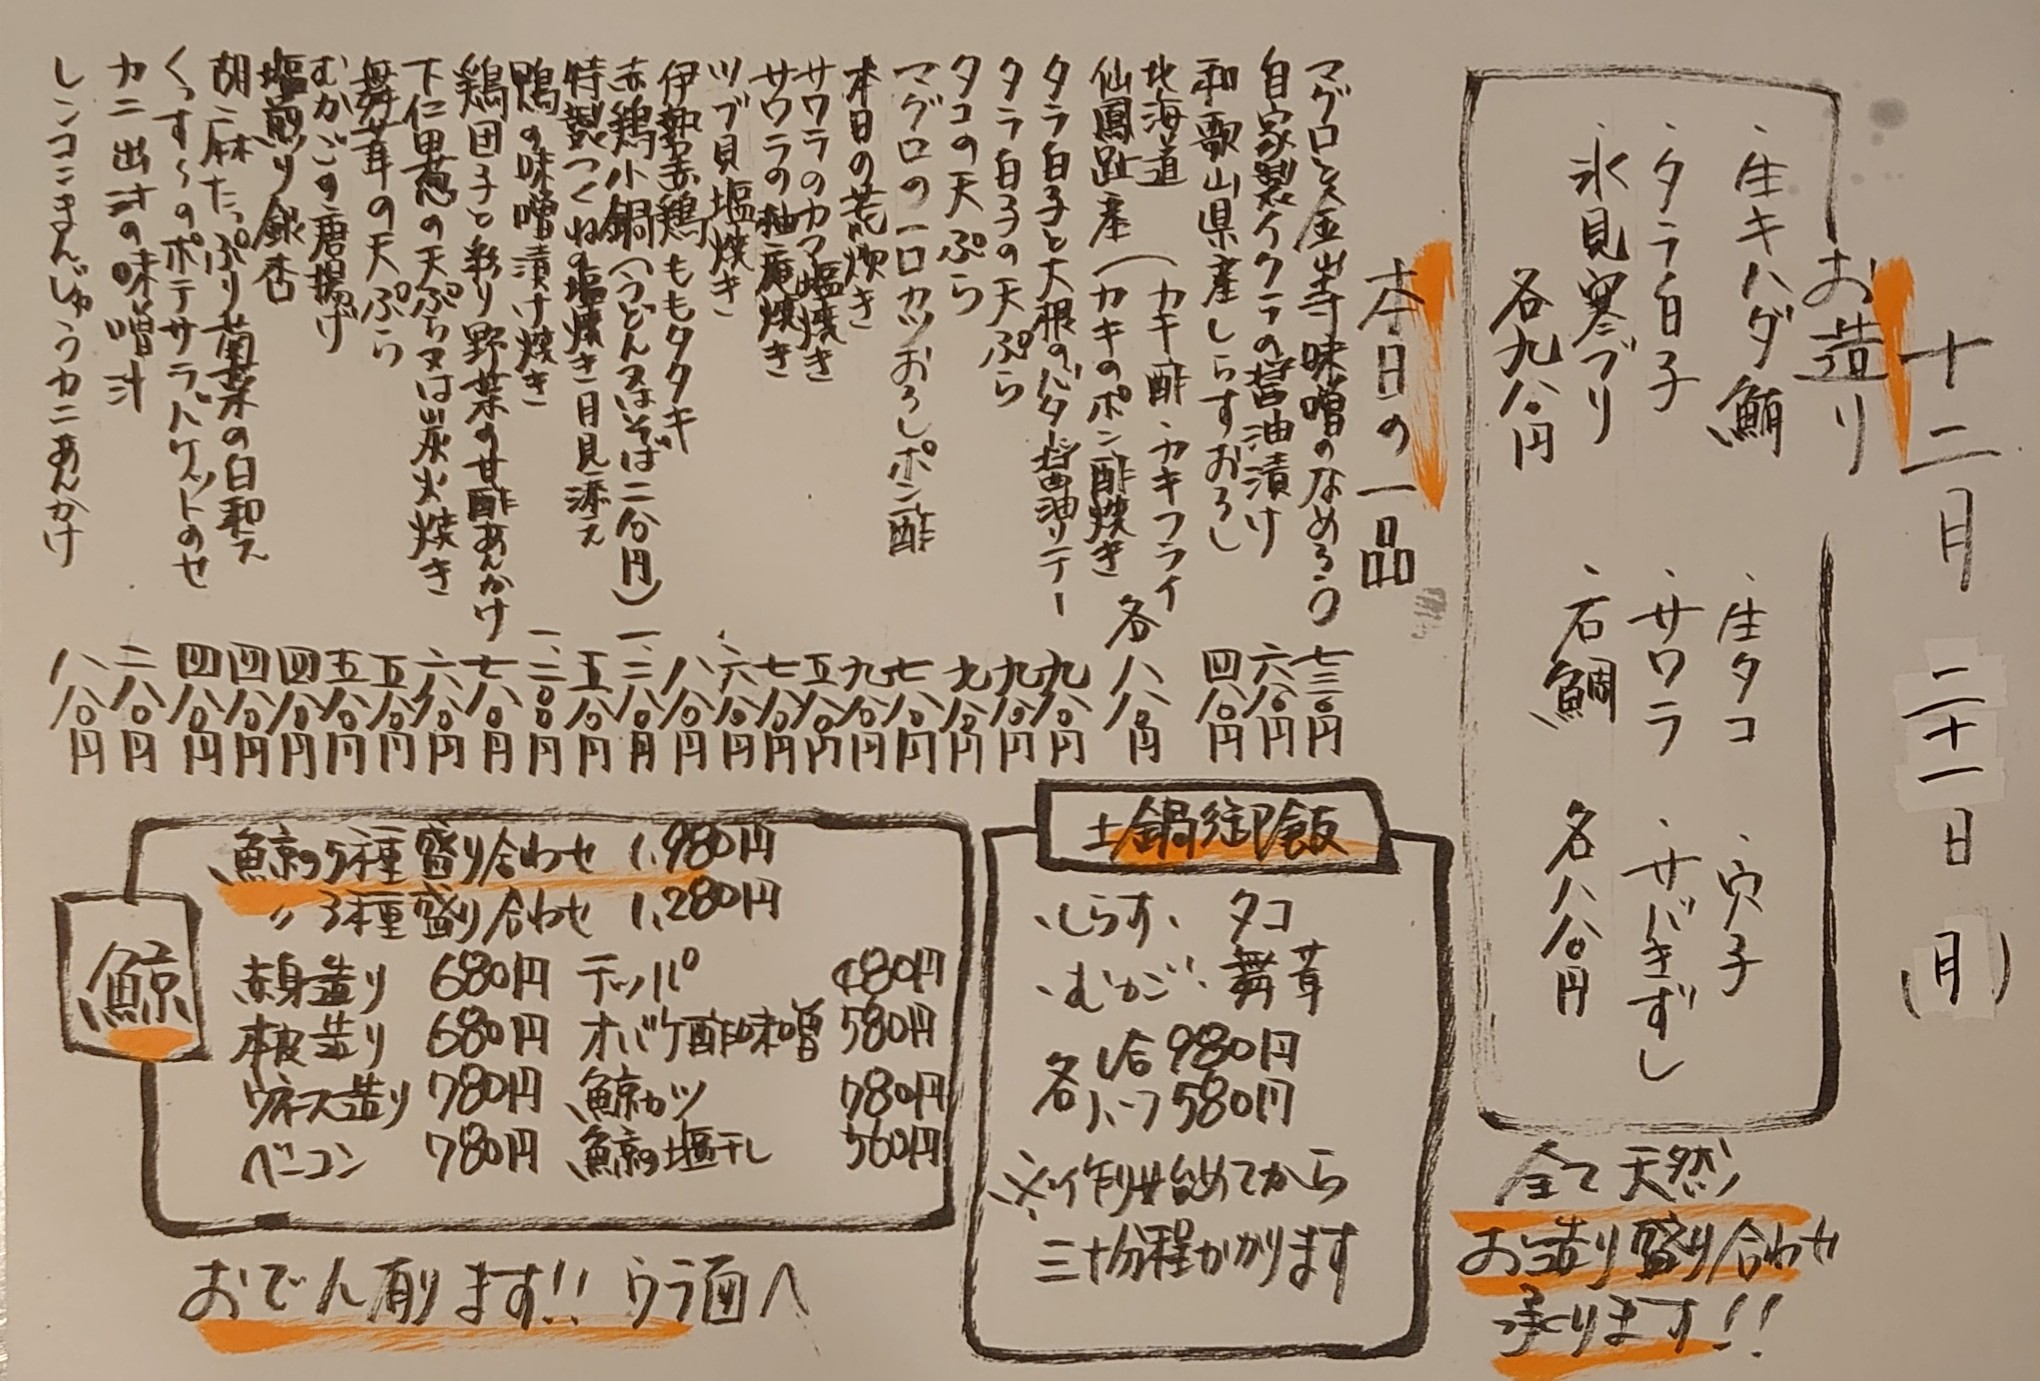 十二月二十一日(月)
お造り
・生キハダ鮪
・タラ白子
・氷見寒ブリ
各九八〇円
・生タコ
・サワラ
・石鯛
・穴子
・サバきずし
各八八〇円
全て天然
お造り盛り合わせ
承ります!!
本日の一品
マグロと金山寺味噌のなめろう 七三〇円
自家製イクラの醤油漬け 六八〇円
和歌山県産しらすおろし 四八〇円
北海道
仙鳳趾産(カキ酢・カキフライ
カキのポン酢焼き 各八八〇円
タラ白子と大根のバター醤油ソテー 九八〇円
タラ白子の天ぷら 九八〇円
タコの天ぷら 九八〇円
マグロの一口カツおろしポン酢 七八〇円
本日の荒炊き 九八〇円
サワラのカマ塩焼き 五八〇円
サワラの柚庵焼き 七八〇円
ツブ貝塩焼き 六八〇円
伊勢赤鶏ももタタキ 八八〇円
赤鶏小鍋(うどん又はそば二八〇円) 一、二八〇円
特製つくねの塩焼き月見添え 五八〇円
鴨の味噌漬け焼き 一、二〇〇円
鶏団子と彩り野菜の甘酢あんかけ 七八〇円
下仁田葱の天ぷら又は炭火焼き 六八〇円
舞茸の天ぷら 五八〇円
むかごの唐揚げ 五八〇円
塩煎り銀杏 四八〇円
胡麻たっぷり菊菜の白和え 四八〇円
くっすーのポテサラバケットのせ 四八〇円
カニ出汁の味噌汁 二八〇円
レンコンまんじゅうカニあんかけ 八八〇円
土鍋御飯
・しらす・タコ
・むかご・舞茸
各1合980円
各ハーフ580円
※作り始めてから
三十分程かかります
鯨
鯨の5種盛り合わせ 1,980円
〃3種盛り合わせ 1,280円
赤身造り 680円 テッパ 480円
本皮造り 680円 オバケ酢味噌 580円
ウネス造り 780円 鯨カツ 780円
ベーコン 780円 鯨の塩干し 560円
おでん有ります!! ウラ面へ